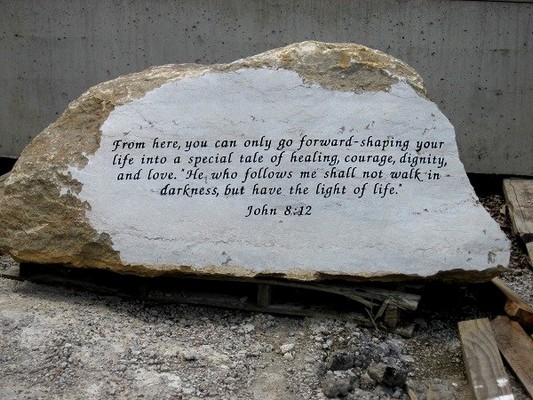 From here, you can only go forward-shaping your
life into a special tale of healing, courage, dignity,
and love. "He who follows me shall not walk in
darkness, but have the light of life."
John 8:12